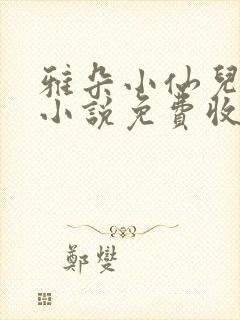 雅朵小仙兒
小說免費收
鄭燮